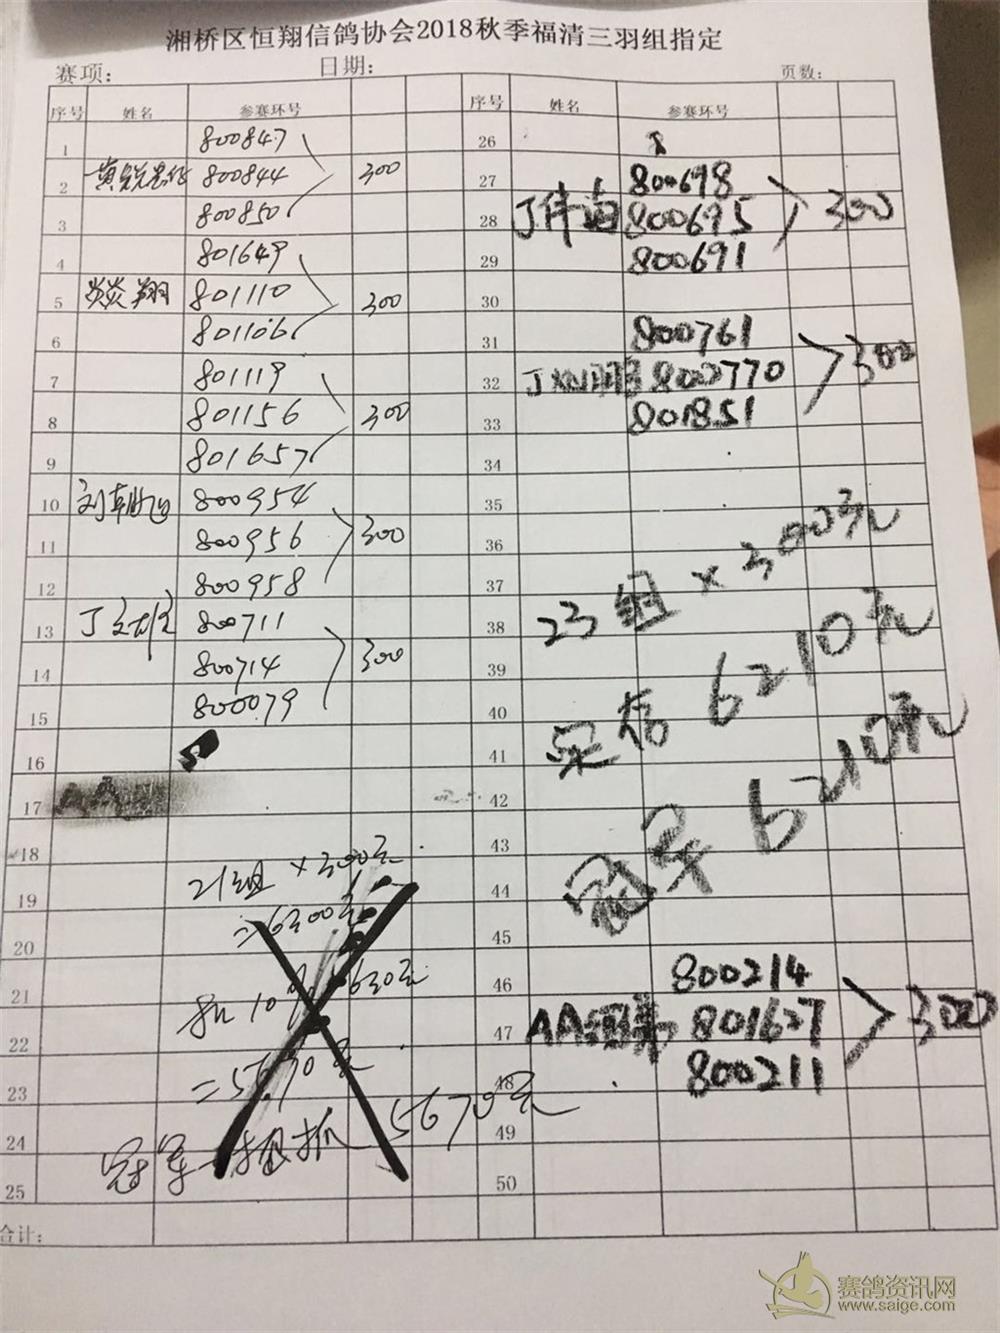 湘桥区恒翔信鸽协会2018秋季福清三羽组指定
赛项: 日期: 页数:
序号 姓名 参赛环号 序号 姓名 参赛环号
1 800847
2 800844 300
3 800850
4 801649
5 焱翔 801110 300
6 801106
7 801119
8 801156 300
9 801657
10 刘朝 800954
11 800956 300
12 800958
13 丁 800711
14 800714 300
15 800079
16
17 AA
18
19 21组×300元
20 =6300元
21
22 扣10% 630元
23 =5670元
24 冠军一把抓 5670元
25
合计:
26
27 800698
28 丁伟 800695 300
29 800691
30
31 800761
32 丁 800770 300
33 801851
34
35
36
37
38 23组×300元
39
40 6210元
41
42
43
44 冠军 6210元
45
46 800214
47 AA 801627 300
48 800211
49
50
赛鸽资讯网
www.saige.com